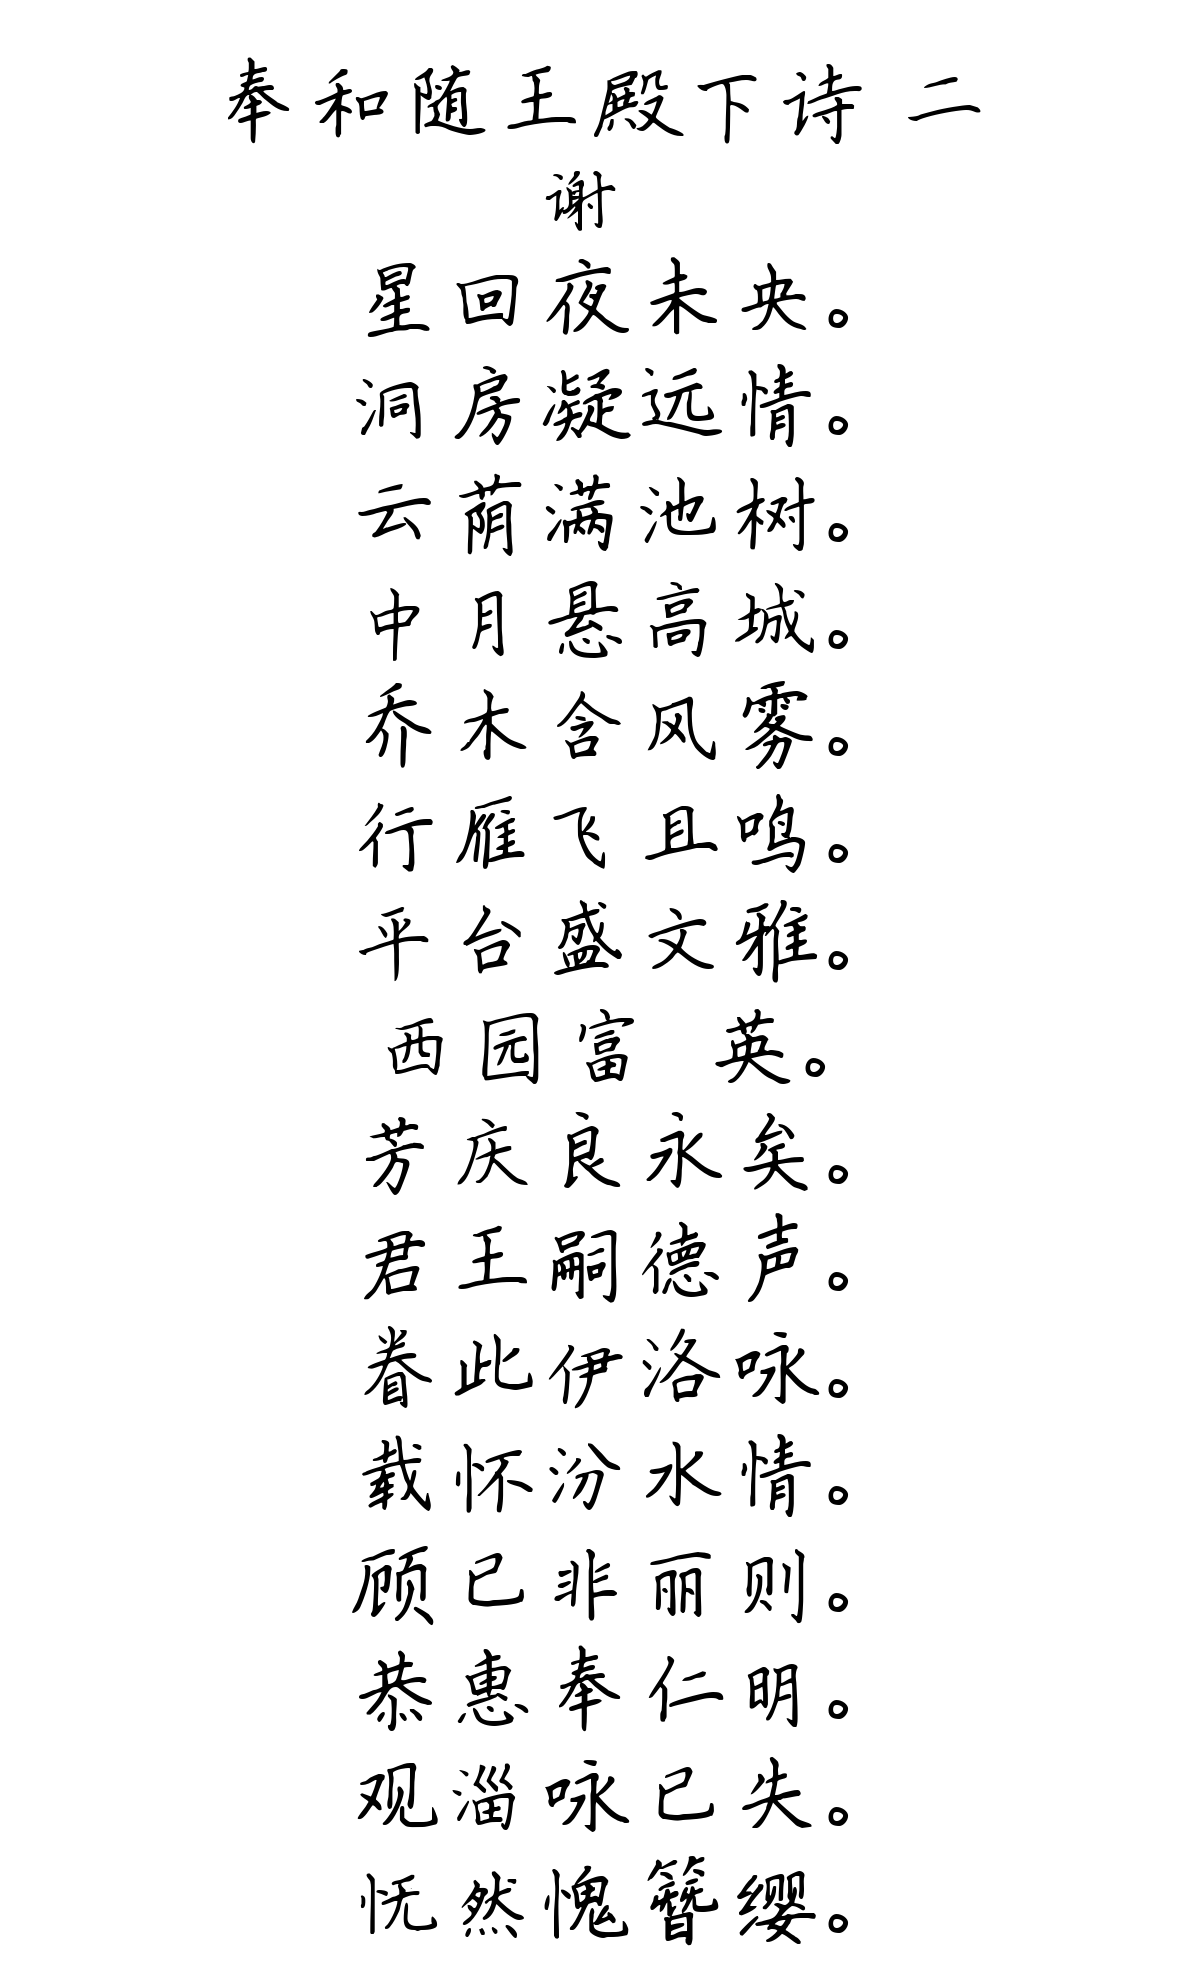 奉和随王殿下诗 二
谢
星回夜未央。
洞房凝远情。
云荫满池树。
中月悬高城。
乔木含风雾。
行雁飞且鸣。
平台盛文雅。
西园富 英。
芳庆良永矣。
君王嗣德声。
眷此伊洛咏。
载怀汾水情。
顾已非丽则。
恭惠奉仁明。
观淄咏已失。
怃然愧簪缨。